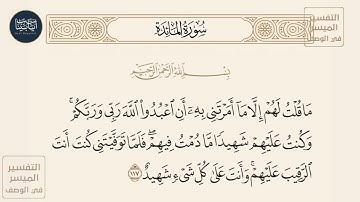 سُورَةُ المَائِدَة
التفسير
الميسر
في الوصف
بِسْمِ اللَّهِ الرَّحْمَٰنِ الرَّحِيمِ
مَا قُلْتُ لَهُمْ إِلَّا مَا أَمَرْتَنِي بِهِۦٓ أَنِ ٱعْبُدُوا۟ ٱللَّهَ رَبِّي وَرَبَّكُمْ ۚ
وَكُنتُ عَلَيْهِمْ شَهِيدًا مَّا دُمْتُ فِيهِمْ ۖ فَلَمَّا تَوَفَّيْتَنِي كُنتَ أَنتَ
ٱلرَّقِيبَ عَلَيْهِمْ ۚ وَأَنتَ عَلَىٰ كُلِّ شَىْءٍ شَهِيدٌ ١١٧
التفسير
الميسر
في الوصف